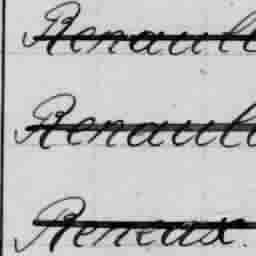 Renaull
Renaull
Reneux.